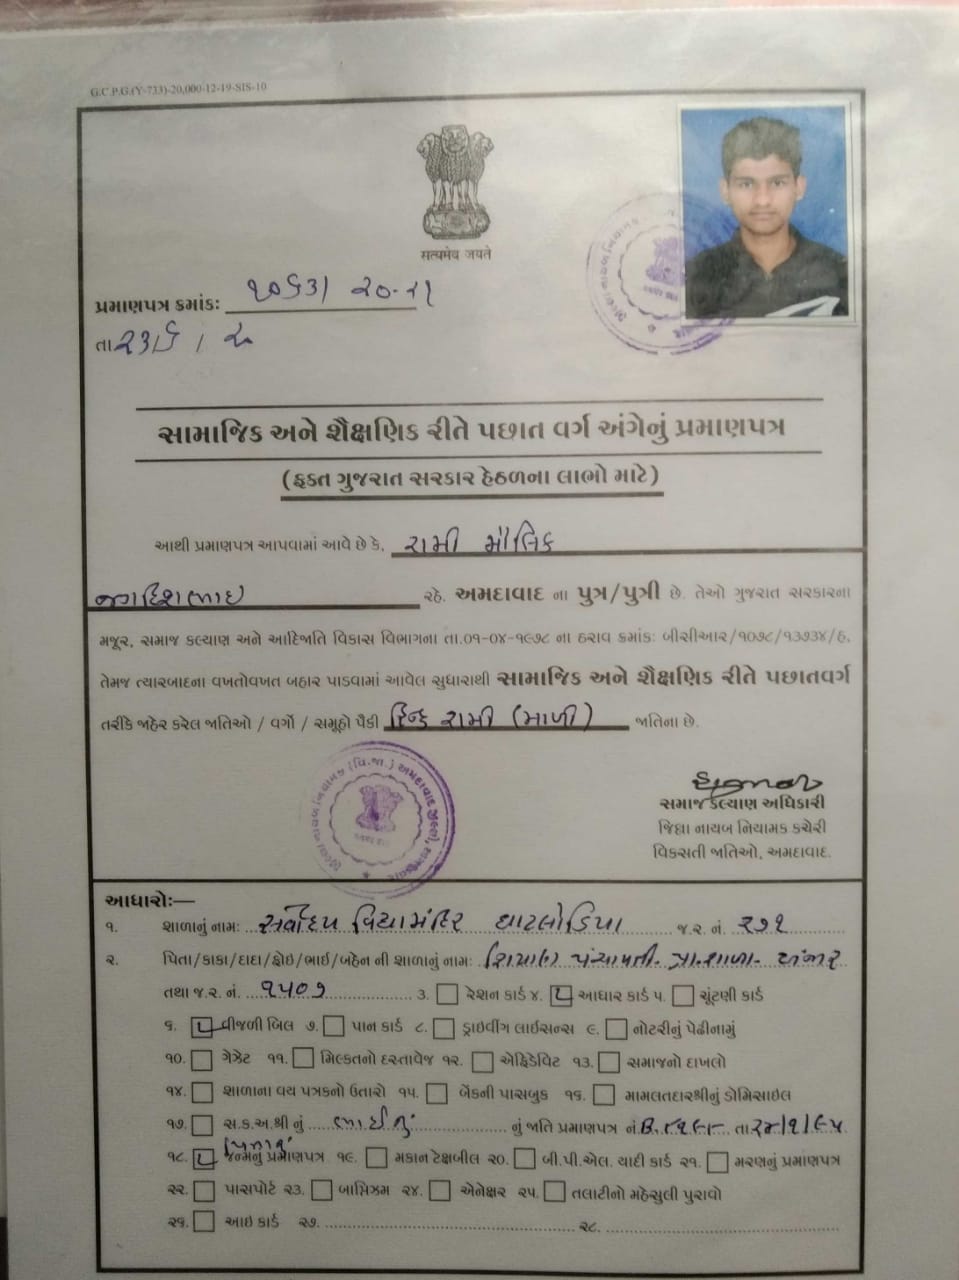 G.C.P.G.(Y-733)-20,000-12-19-SIS-10
सत्यमेव जयते
પ્રમાણપત્ર ક્રમાંક: ૨૦-૨૧
તા
સામાજિક અને શૈક્ષણિક રીતે પછાત વર્ગ અંગેનું પ્રમાણપત્ર
(ફક્ત ગુજરાત સરકાર હેઠળના લાભો માટે)
આથી પ્રમાણપત્ર આપવામાં આવે છે કે, રામી મૌલિક
જગદિશભાઇ રહે. અમદાવાદ ના પુત્ર/પુત્રી છે. તેઓ ગુજરાત સરકારના
મજૂર, સમાજ કલ્યાણ અને આદિજાતિ વિકાસ વિભાગના તા.૦૧-૦૪-૧૯૭૮ ના ઠરાવ ક્રમાંક: બીસીઆર/૧૦૭૮/૧૩૭૩૪/હ,
તેમજ ત્યારબાદના વખતોવખત બહાર પાડવામાં આવેલ સુધારાથી સામાજિક અને શૈક્ષણિક રીતે પછાતવર્ગ
તરીકે જાહેર કરેલ જાતિઓ / વર્ગો / સમૂહો પૈકી હિન્દુ રામી (માળી) જાતિના છે.
સમાજ કલ્યાણ અધિકારી
જિલ્લા નાયબ નિયામક કચેરી
વિકસતી જાતિઓ, અમદાવાદ.
આધારો:—
૧. શાળાનું નામ: સર્વોદય વિદ્યામંદિર ઘાટલોડિયા જ.ર. નં. ૨૭૧
૨. પિતા/કાકા/દાદા/ફોઇ/ભાઇ/બહેન ની શાળાનું નામ: પ્રા.શાળા
તથા જ.ર. નં. ૧૫૦૭ ૩. રેશન કાર્ડ ૪. આધાર કાર્ડ ૫. ચૂંટણી કાર્ડ
૬. વીજળી બિલ ૭. પાન કાર્ડ ૮. ડ્રાઇવીંગ લાઇસન્સ ૯. નોટરીનું પેઢીનામું
૧૦. ગેઝેટ ૧૧. મિલ્કતનો દસ્તાવેજ ૧૨. એફિડેવિટ ૧૩. સમાજનો દાખલો
૧૪. શાળાના વય પત્રકનો ઉતારો ૧૫. બેંકની પાસબુક ૧૬. મામલતદારશ્રીનું ડોમિસાઇલ
૧૭. સ.ક.અ.શ્રી નું ભાઈનું નું જાતિ પ્રમાણપત્ર નં. તા
૧૮. જન્મનું પ્રમાણપત્ર ૧૯. મકાન ટેક્ષબીલ ૨૦. બી.પી.એલ. યાદી કાર્ડ ૨૧. મરણનું પ્રમાણપત્ર
૨૨. પાસપોર્ટ ૨૩. બાપ્તિઝમ ૨૪. એનેક્ષર ૨૫. તલાટીનો મહેસુલી પુરાવો
૨૬. આઇ કાર્ડ ૨૭. ૨૮.